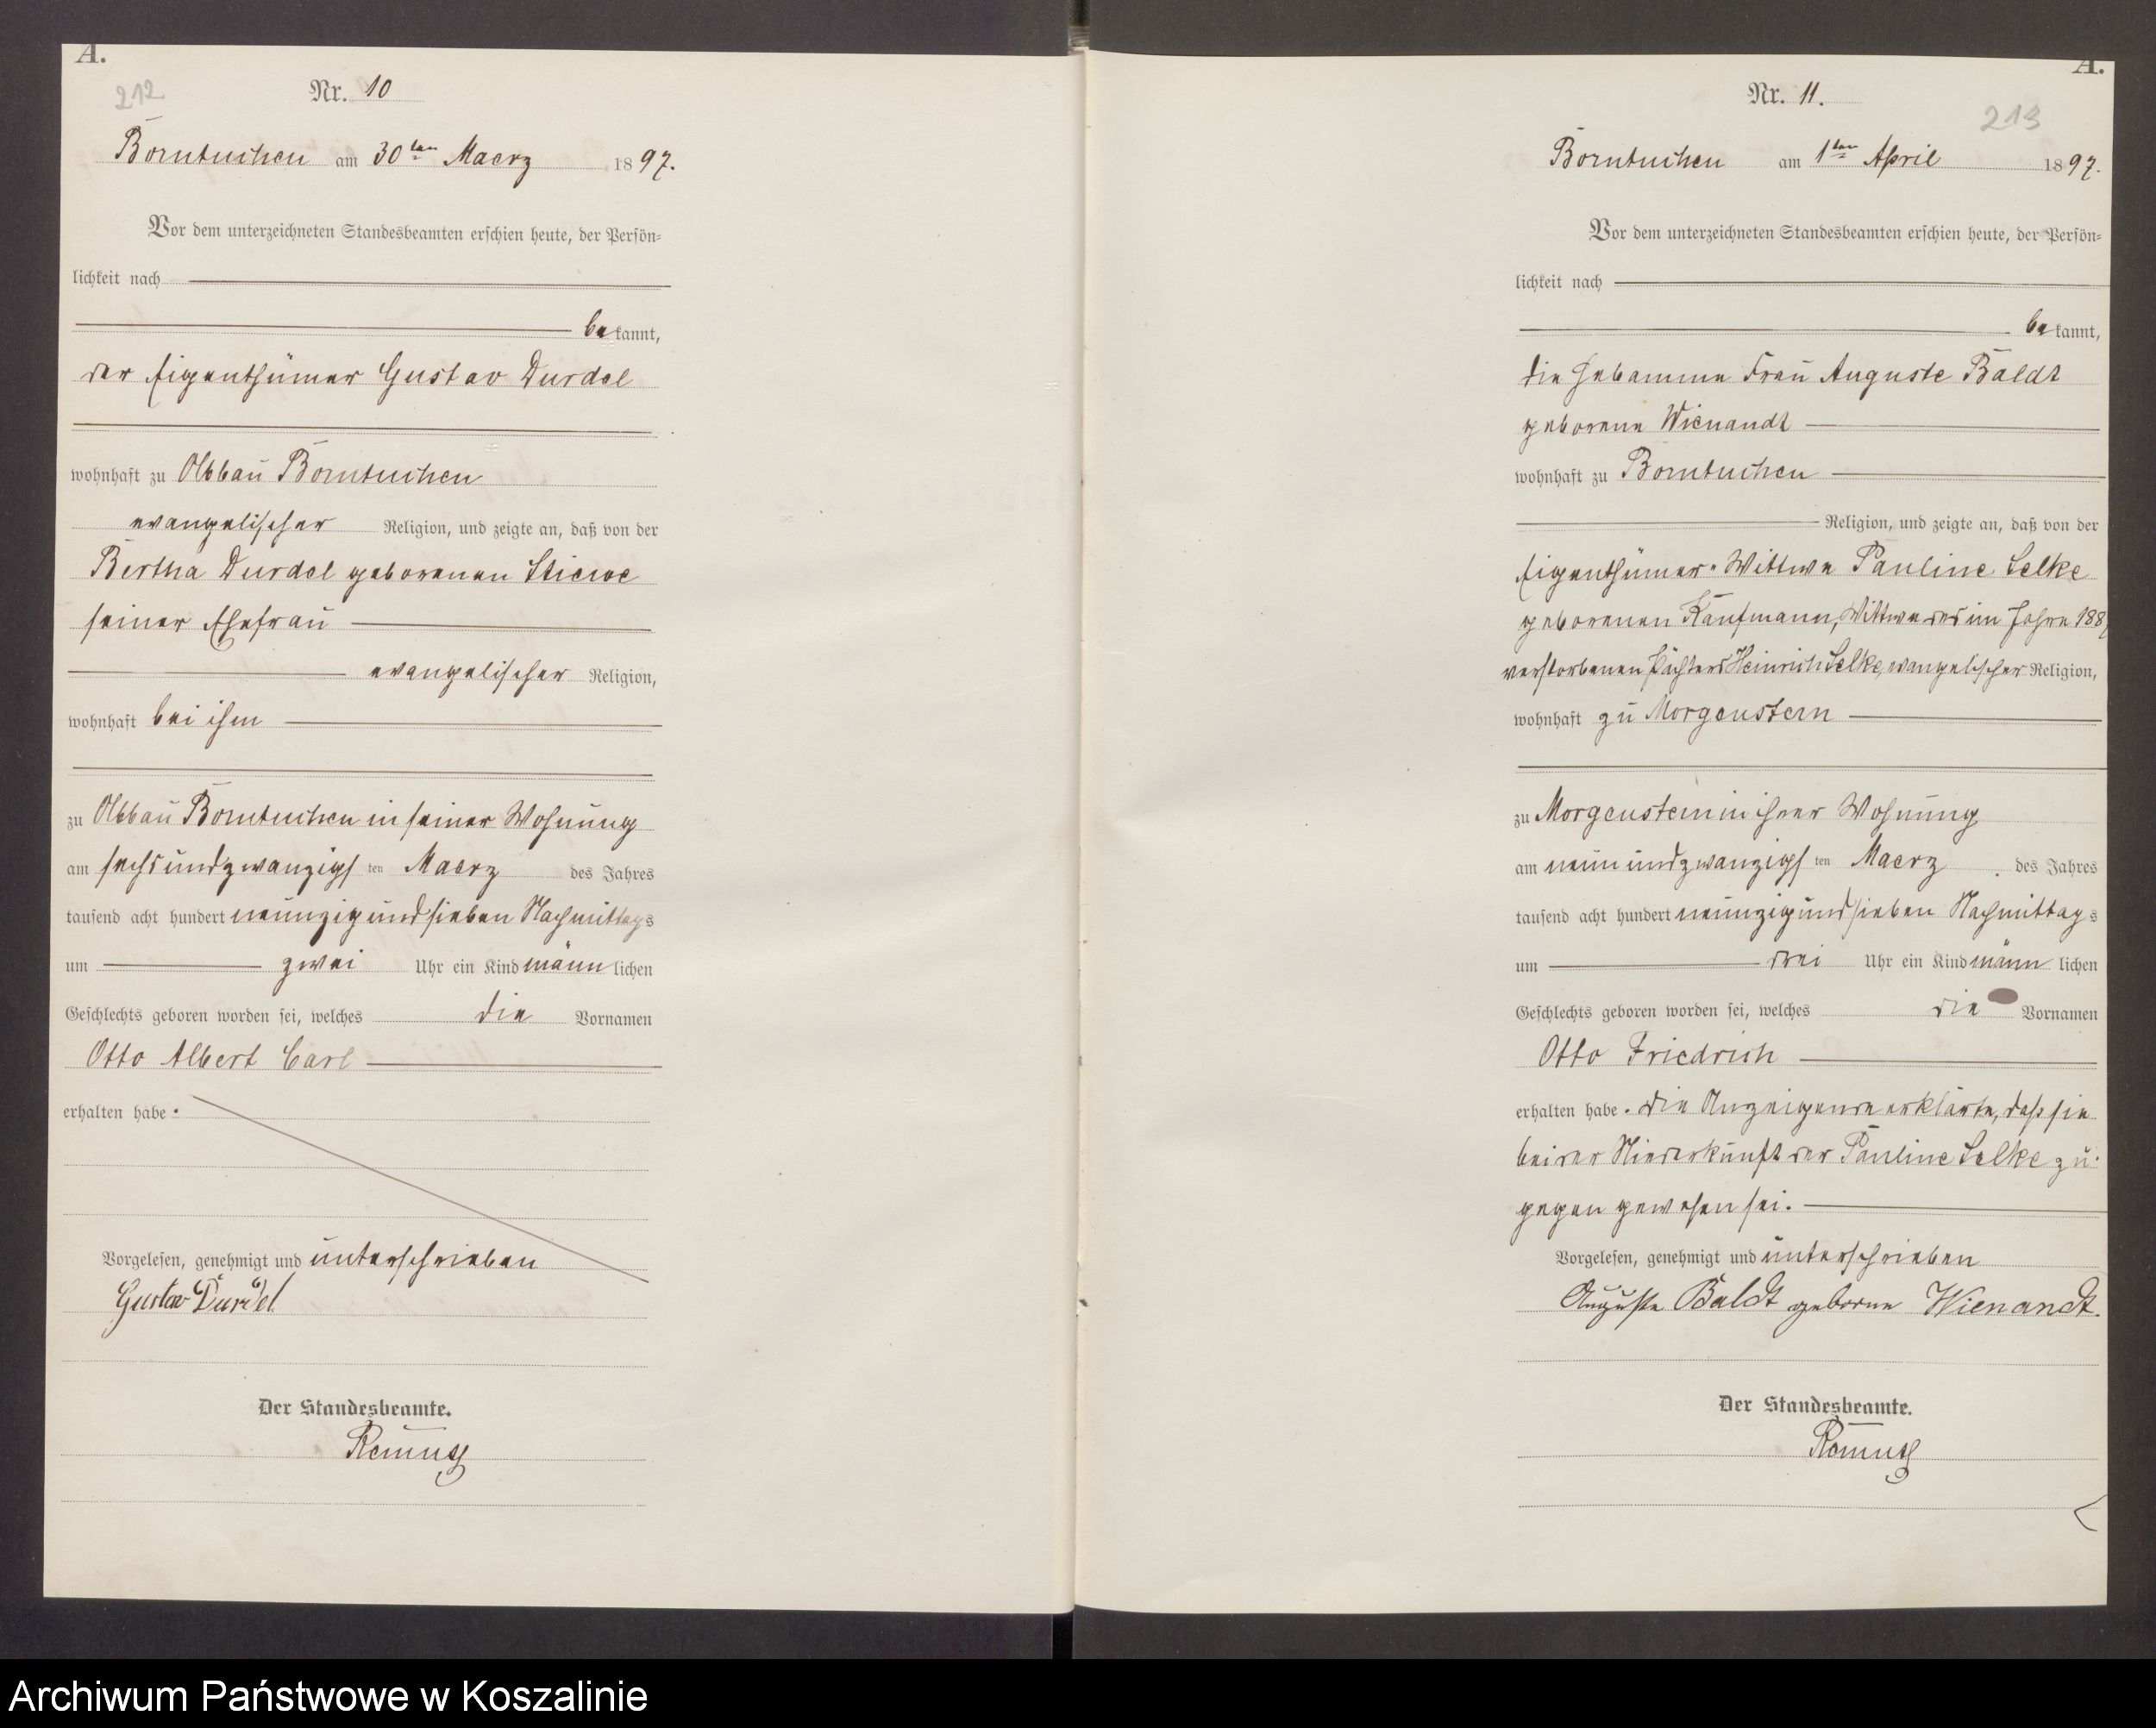 A.
212
Nr. 10
Borntuchen am 30ten Maerz 1897.
Vor dem unterzeichneten Standesbeamten erschien heute, der Persön-
lichkeit nach
bekannt,
der Eigenthümer Gustav Durdel
wohnhaft zu Abbau Borntuchen
evangelischer Religion, und zeigte an, daß von der
Bertha Durdel geborenen Stiewe
seiner Ehefrau
evangelischer Religion,
wohnhaft bei ihm
zu Abbau Borntuchen in seiner Wohnung
am sechsundzwanzigsten Maerz des Jahres
tausend acht hundert neunzig und sieben Nachmittags
um zwei Uhr ein Kind männlichen
Geschlechts geboren worden sei, welches die Vornamen
Otto Albert Carl
erhalten habe.
Vorgelesen, genehmigt und unterschrieben
Gustav Durdel
Der Standesbeamte.
Remus
A.
Nr. 11.
213
Borntuchen am 1ten April 1897.
Vor dem unterzeichneten Standesbeamten erschien heute, der Persön-
lichkeit nach
bekannt,
die Hebamme Frau Auguste Baldt
geborene Wienandt
wohnhaft zu Borntuchen
Religion, und zeigte an, daß von der
Eigenthümer-Wittwe Pauline Selke
geborenen Kaufmann, Wittwe des im Jahre
verstorbenen Pächters Heinrich Selke, evangelischer Religion,
wohnhaft zu Morgenstern
zu Morgenstern in ihrer Wohnung
am neunundzwanzigsten Maerz des Jahres
tausend acht hundert neunzig und sieben Nachmittags
um drei Uhr ein Kind männlichen
Geschlechts geboren worden sei, welches die Vornamen
Otto Friedrich
erhalten habe. Die Anzeigende erklärte, daß sie
bei der Niederkunft der Pauline Selke zu-
gegen gewesen sei.
Vorgelesen, genehmigt und unterschrieben
Auguste Baldt geborne Wienandt.
Der Standesbeamte.
Remus
Archiwum Państwowe w Koszalinie